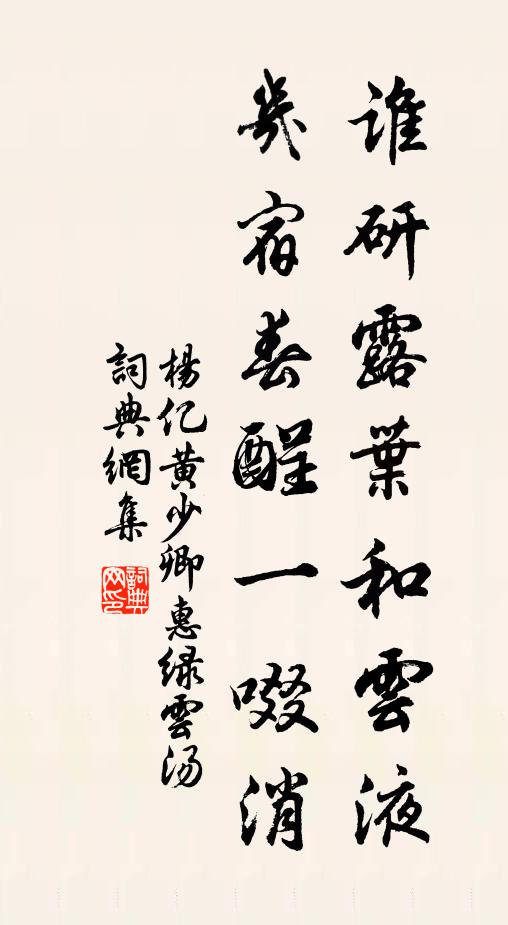 誰研露葉和雲液
幾宿春酲一啜消
楊億黃少卿惠綠雲湯
詞典網集
詞典網印